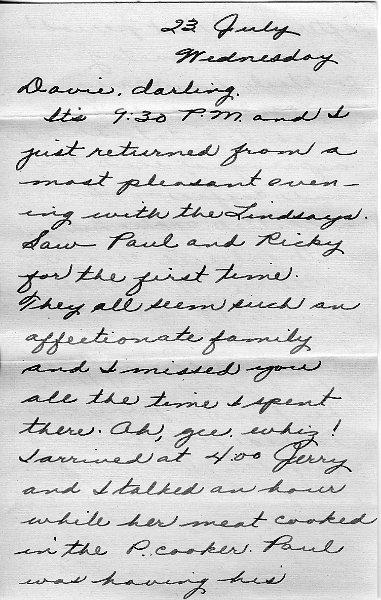 23 July
Wednesday
Davie, darling.
It's 9:30 P.M. and I
just returned from a
most pleasant even-
ing with the Lindsays.
Saw Paul and Ricky
for the first time.
They all seem such an
affectionate family
and I missed you
all the time I spent
there. Oh, gee, whiz!
I arrived at 4:00 Jerry
and I talked an hour
while her meat cooked
in the P. cooker. Paul
was having his